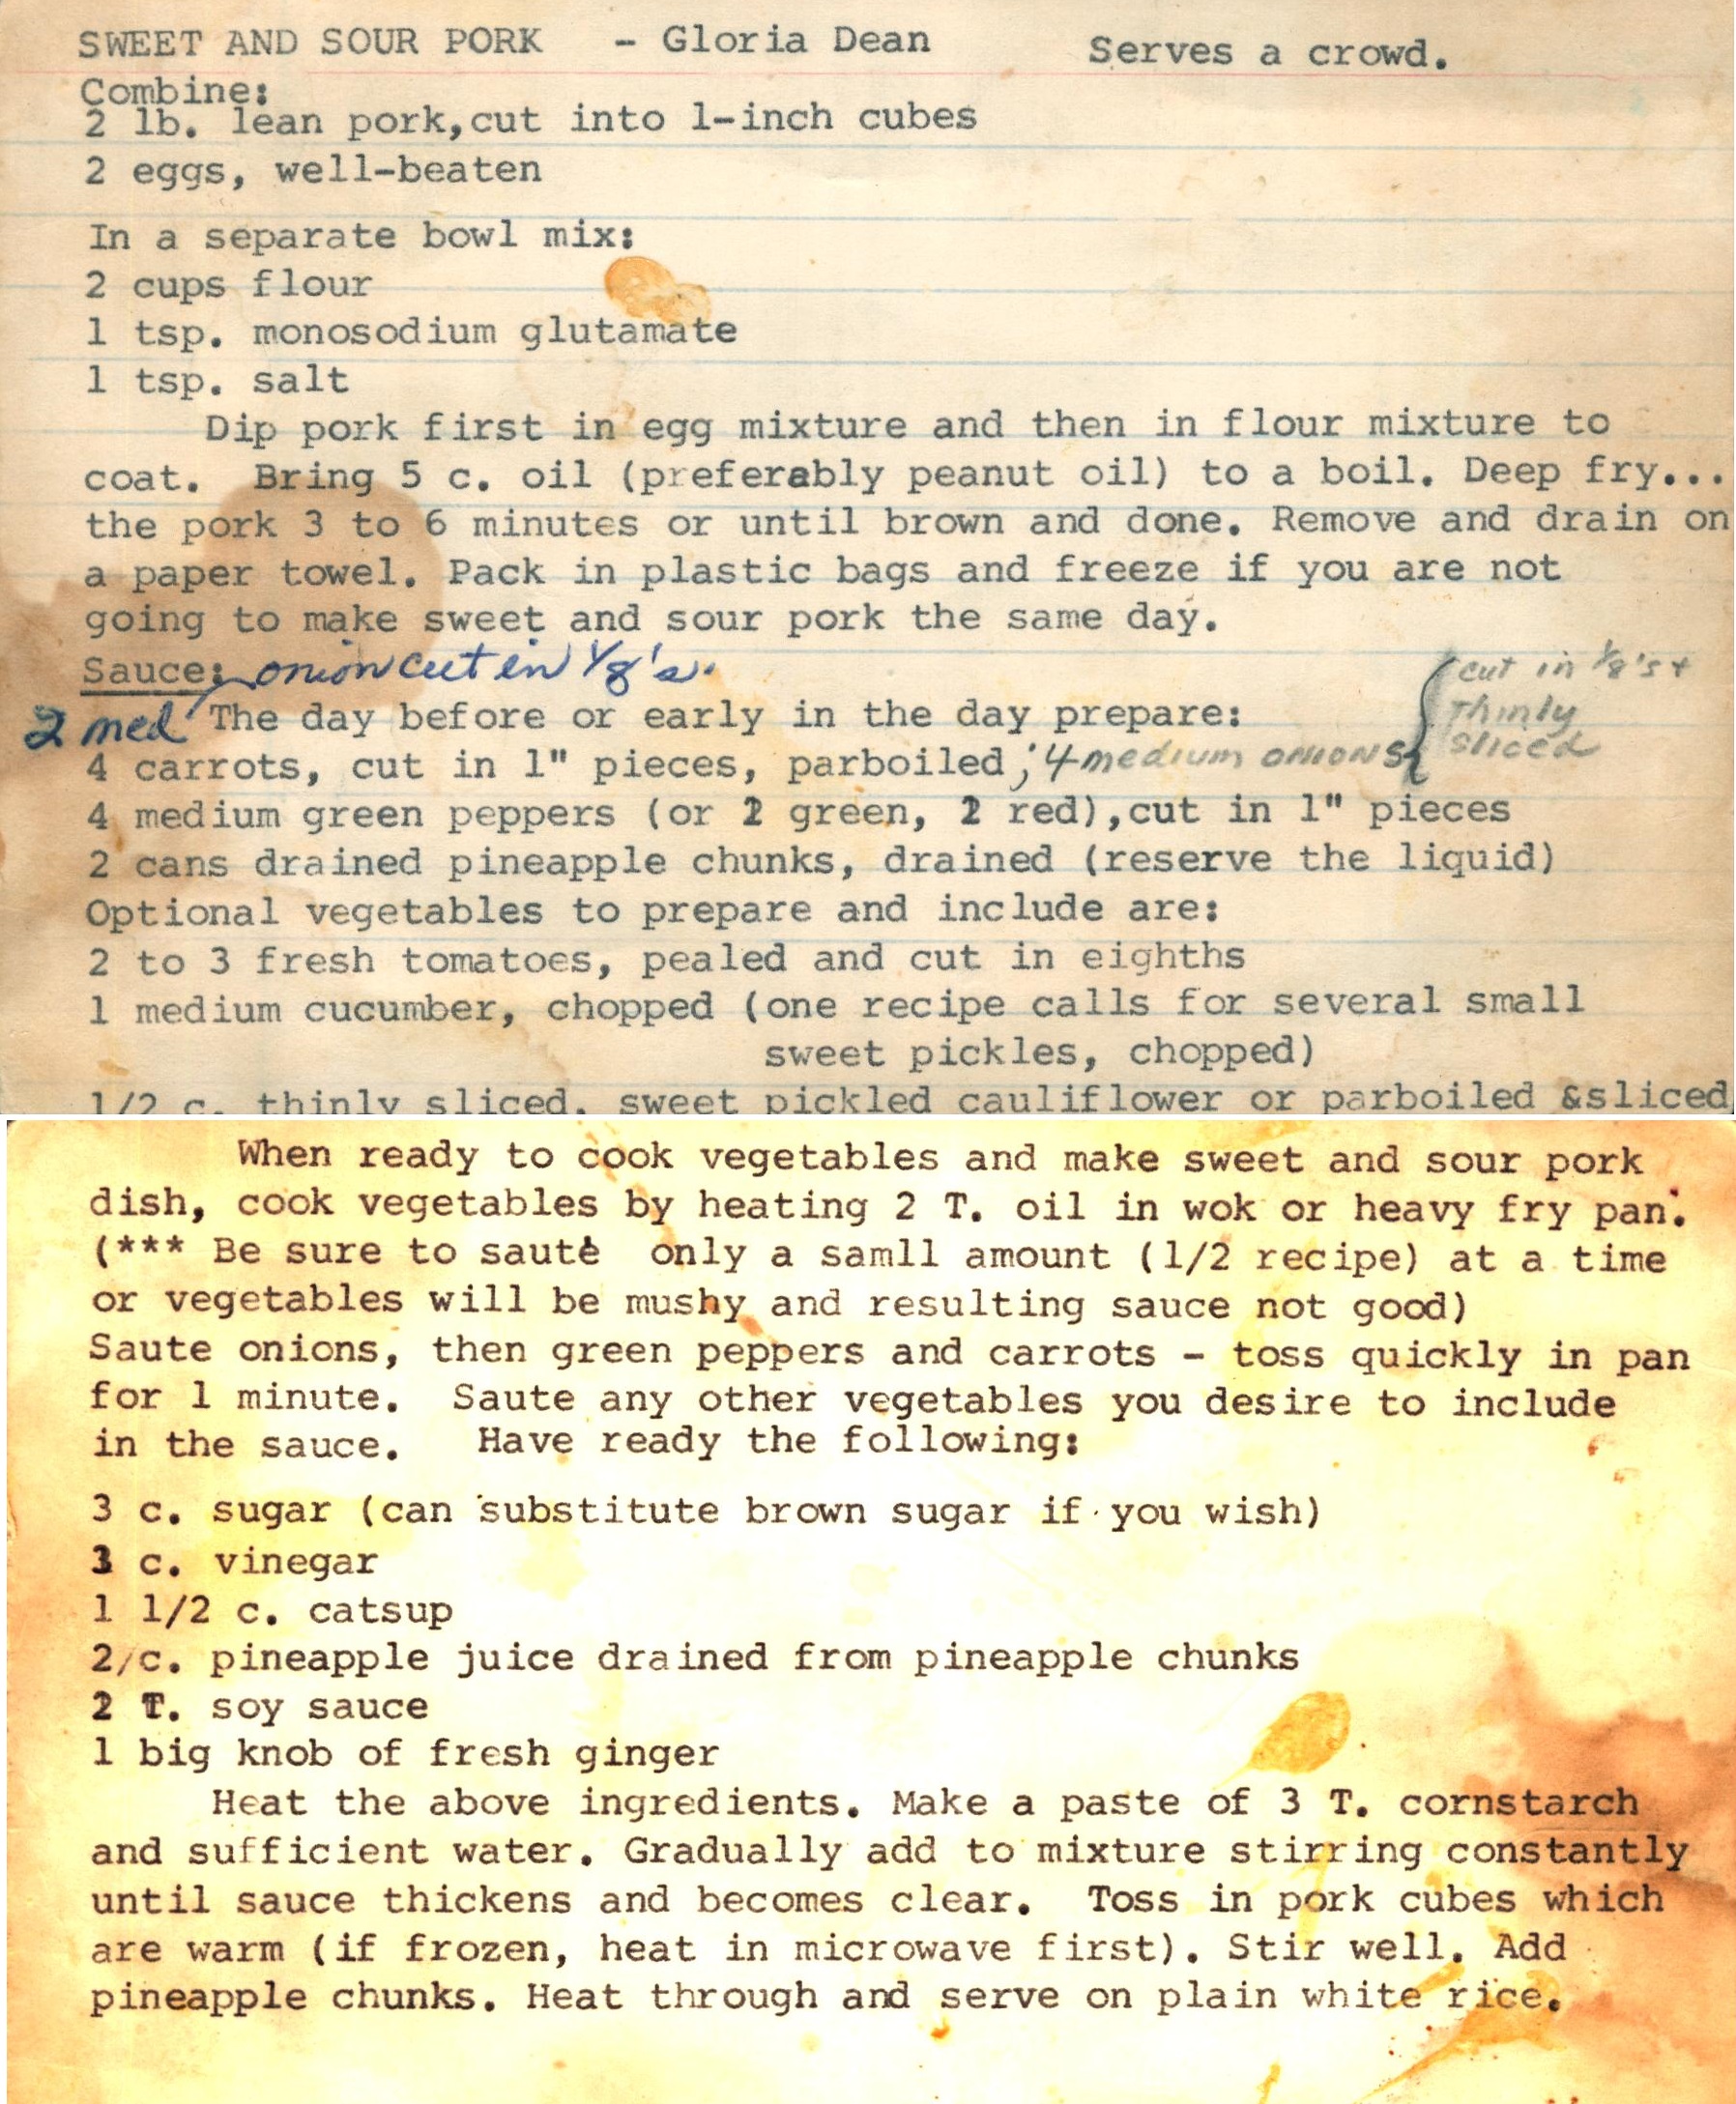 SWEET AND SOUR PORK - Gloria Dean Serves a crowd.
Combine:
2 lb. lean pork,cut into 1-inch cubes
2 eggs, well-beaten
In a separate bowl mix:
2 cups flour
1 tsp. monosodium glutamate
1 tsp. salt
Dip pork first in egg mixture and then in flour mixture to
coat. Bring 5 c. oil (preferably peanut oil) to a boil. Deep fry...
the pork 3 to 6 minutes or until brown and done. Remove and drain on
a paper towel. Pack in plastic bags and freeze if you are not
going to make sweet and sour pork the same day.
Sauce: onion cut in 1/8's.
2 med The day before or early in the day prepare:
4 carrots, cut in 1" pieces, parboiled; 4 medium onions { cut in 1/8's +
thinly
sliced
4 medium green peppers (or 2 green, 2 red),cut in 1" pieces
2 cans drained pineapple chunks, drained (reserve the liquid)
Optional vegetables to prepare and include are:
2 to 3 fresh tomatoes, pealed and cut in eighths
1 medium cucumber, chopped (one recipe calls for several small
sweet pickles, chopped)
1/2 c. thinly sliced, sweet pickled cauliflower or parboiled &sliced
When ready to cook vegetables and make sweet and sour pork
dish, cook vegetables by heating 2 T. oil in wok or heavy fry pan.
(*** Be sure to sautè only a samll amount (1/2 recipe) at a time
or vegetables will be mushy and resulting sauce not good)
Saute onions, then green peppers and carrots - toss quickly in pan
for 1 minute. Saute any other vegetables you desire to include
in the sauce. Have ready the following:
3 c. sugar (can substitute brown sugar if you wish)
3 c. vinegar
1 1/2 c. catsup
2/c. pineapple juice drained from pineapple chunks
2 T. soy sauce
1 big knob of fresh ginger
Heat the above ingredients. Make a paste of 3 T. cornstarch
and sufficient water. Gradually add to mixture stirring constantly
until sauce thickens and becomes clear. Toss in pork cubes which
are warm (if frozen, heat in microwave first). Stir well. Add
pineapple chunks. Heat through and serve on plain white rice.